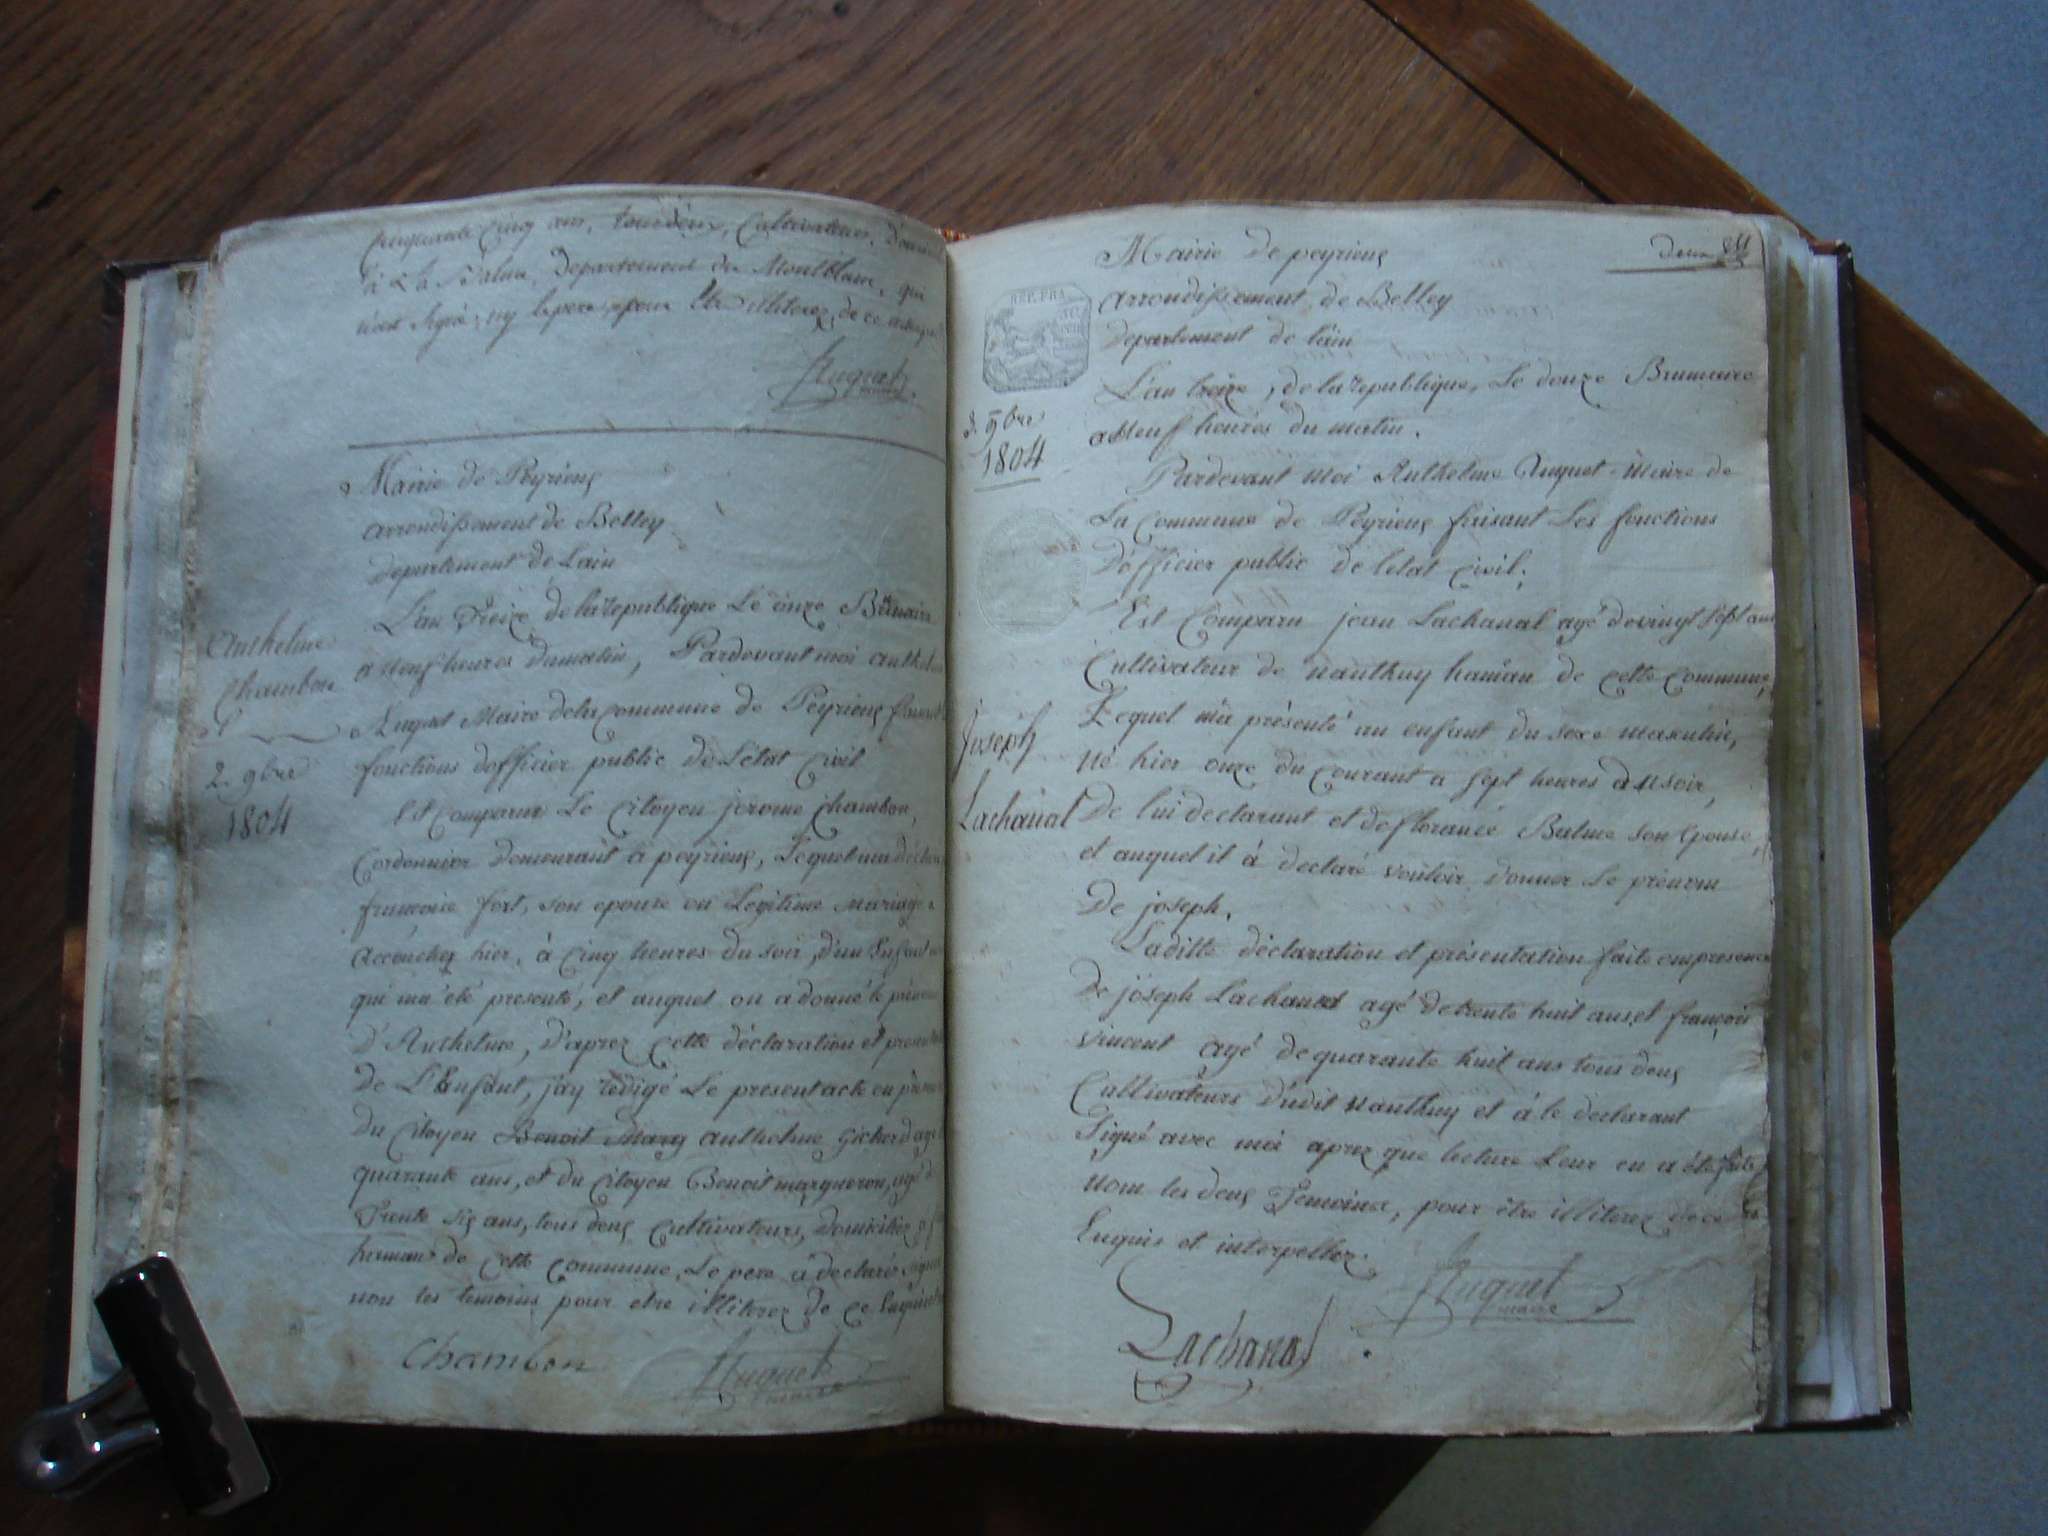 cinquante cinq ans, tous deux, Cultivateurs,
à La Balme, departement du Montblanc, qui
n'ont signé, ny le pere pour être illiterez, de ce
Huguet
maire
Mairie de Peyrieux
arrondissement de Belley
Departement de Lain
L'an Treize de la republique Le onze Brumaire
a neuf heures du matin, Pardevant moi anthelme
Huguet Maire de la Commune de Peyrieux faisant
fonctions d'officier public de L'état Civil
Est Comparu Le Citoyen jerome Chambon,
Cordonnier demeurant à peyrieux, Lequel m'a
françoise fort, son epouse en Legitime mariage
accouchez hier, à Cinq heures du soir, d'un Enfant
qui m'a été presenté, et auquel on a donné le prénom
D'Anthelme, D'aprez Cette déclaration et
de L'Enfant, j'ay redigé Le present acte en
du Citoyen Benoit Marq anthelme
quarante ans, et du Citoyen Benoit margueron, agé de
Trente Six ans, tous deux Cultivateurs, domiciliez
hameau de Cette Commune, Le pere a declaré signer
non les temoins pour etre illiterez de ce Enquis
Chambon
Huguet
maire
Anthelme
Chambon
2. 9bre
1804
Mairie de peyrieux
deux
REP. FRA.
arrondissement de Belley
Departement de l'ain
L'an treize, de la republique, Le douze Brumaire
a Neuf heures du matin.
3. 9bre
1804
Pardevant Moi Anthelme Huguet Maire de
La Commune de Peyrieux faisant Les fonctions
D'officier public de letat Civil.
Est Comparu jean Lachanal agé de vingt sept ans
Cultivateur de nanthuy hamau de Cette Commune,
Lequel m'a présenté un enfant du sexe masculin,
Né hier onze du Courant a sept heures du soir,
Joseph
Lachanal
De lui declarant et de florance Balme son Epouse,
et auquel il à declaré vouloir donner Le prénom
De joseph.
Laditte déclaration et présentation faite en presence
De joseph Lachanal agé de trente huit ans, et françois
vincent agé de quarante huit ans tous deux
Cultivateurs Dudit nanthuy et à le declarant
Signé avec moi aprez que lecture Leur en a été faite
Nom les deux Temoins, pour être illiterez de ce
Enquis et interpellez.
Huguet
maire
Lachanal